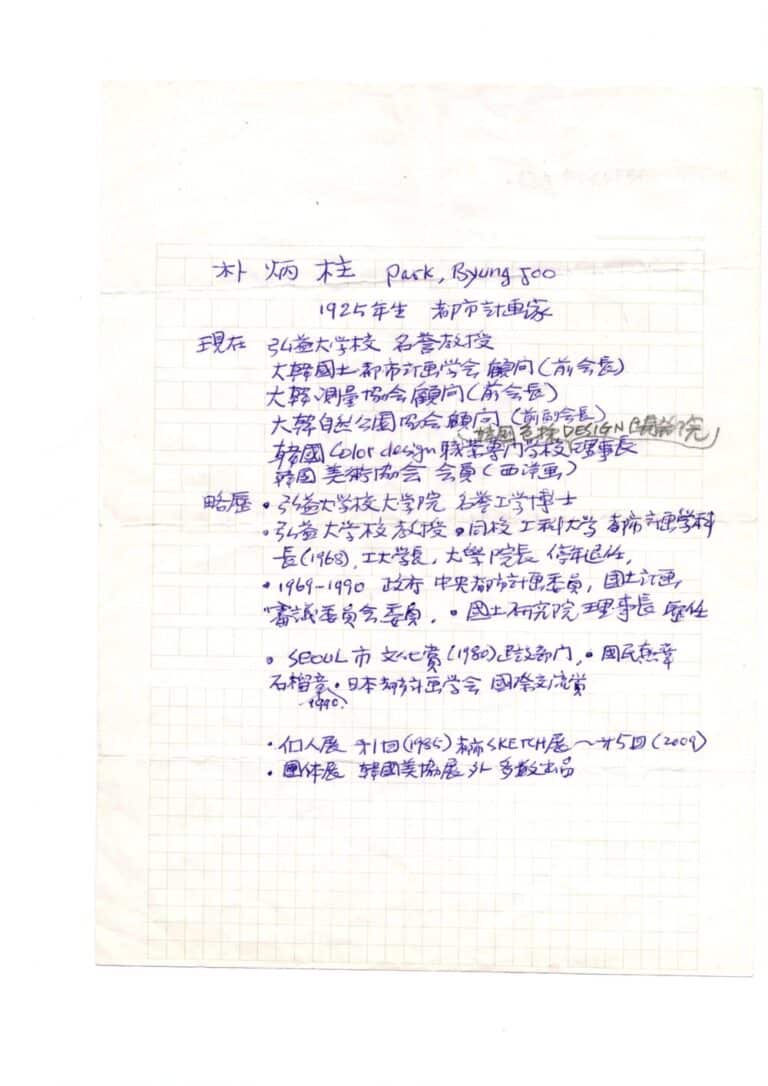 朴 炳 柱 Park, Byung Joo
1925年生 都市計画家
現在 弘益大学校 名誉教授
大韓國土都市計画学会 顧問 (前会長)
大韓測量協会 顧問 (前会長)
大韓自然公園協会 顧問 (前副会長)
韓國色彩DESIGN開発院
韓國 Color design 職業專門学校 理事長
韓國 美術協会 会員 (西洋画)
略歷 • 弘益大学校大学院 名誉工学博士
• 弘益大学校教授 • 同校 工科大学 都市計画学科
長(1968), 工大学長, 大學院長 停年退任,
• 1969-1990 政府 中央都市計画委員, 國土計画
審議委員会委員, • 國土研究院 理事長 歷任
• SEOUL市 文化賞 (1980)建設部门, • 國民勲章
石榴章 • 日本都市計画学会 國際交流賞
1990
• 個人展 第1回 (1985) SKETCH展 〜 第5回 (2009)
• 團体展 韓國美協展 外 多数出品